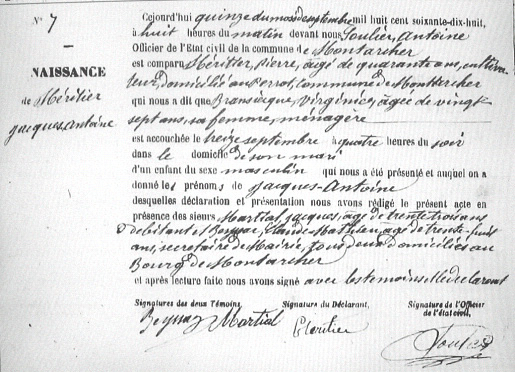 N° 7
NAISSANCE
de Héritier
Jacques, Antoine
Cejourd'hui quinze du mois de septembre mil huit cent soixante-dix-huit,
à huit heures du matin devant nous Soulier, Antoine
Officier de l'Etat civil de la commune de Montarcher
est comparu Héritier, Pierre, âgé de quarante ans, cultiva-
teur, domicilié au Perrot, commune de Montarcher
qui nous a dit que Bransiecq, Virginie, âgée de vingt
sept ans, sa femme, ménagère
est accouchée le treize septembre à quatre heures du soir
dans le domicile de son mari
d'un enfant du sexe masculin qui nous a été présenté et auquel on a
donné les prénoms de Jacques-Antoine
desquelles déclaration et présentation nous avons rédigé le présent acte en
présence des sieurs Martial, Jacques, âgé de trente trois ans
débitant et Beynac, Claude Mathieu, âgé de trente-
ans, secrétaire de Mairie, tous deux domiciliés au
Bourg de Montarcher
et après lecture faite nous avons signé avec les témoins et le déclarant
Signatures des deux Témoins,
Signature du Déclarant,
Signature de l'Officier
de l'état civil,
Beynac Martial
Héritier
Soulier